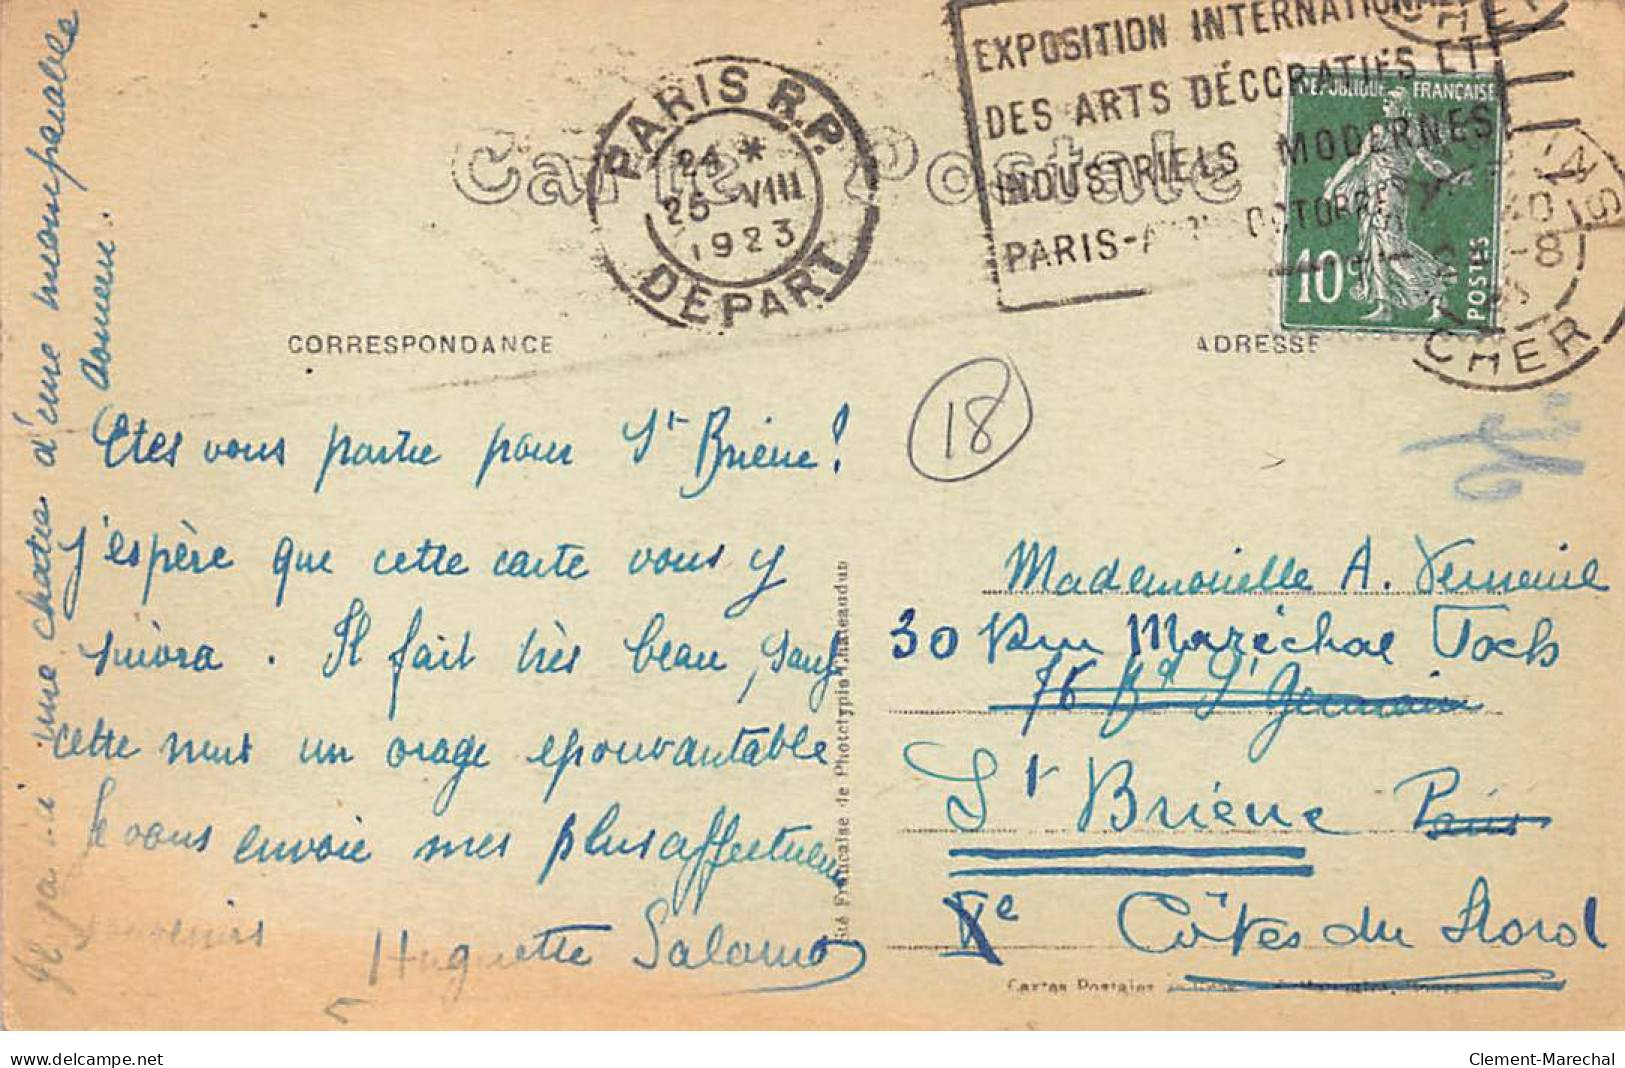 Carte Postale
PARIS R.P.
24 *
25 VIII
1923
DEPART
EXPOSITION INTERNATIONALE
DES ARTS DÉCORATIFS ET
INDUSTRIELS MODERNES
PARIS-A OCTOBRE
REPUBLIQUE FRANÇAISE
10c
POSTES
CHER
CORRESPONDANCE
ADRESSE
18
Etes vous partie pour St Brieuc!
j'espère que cette carte vous y
suivra. Il fait très beau, sauf
cette nuit un orage epouvantable
Je vous envoie mes plus affectueux
souvenirs
Huguette Salomo
Il ya ici une chatre d'une incomparable
Société Française de Phototypie Châteaudun
Mademoiselle A. Verneuil
30 Rue Maréchal Foch
76 Bd St Germain
St Brieuc Paris
Ve Côtes du Nord
Cartes Postales
delcampe.net
Clement-Marechal